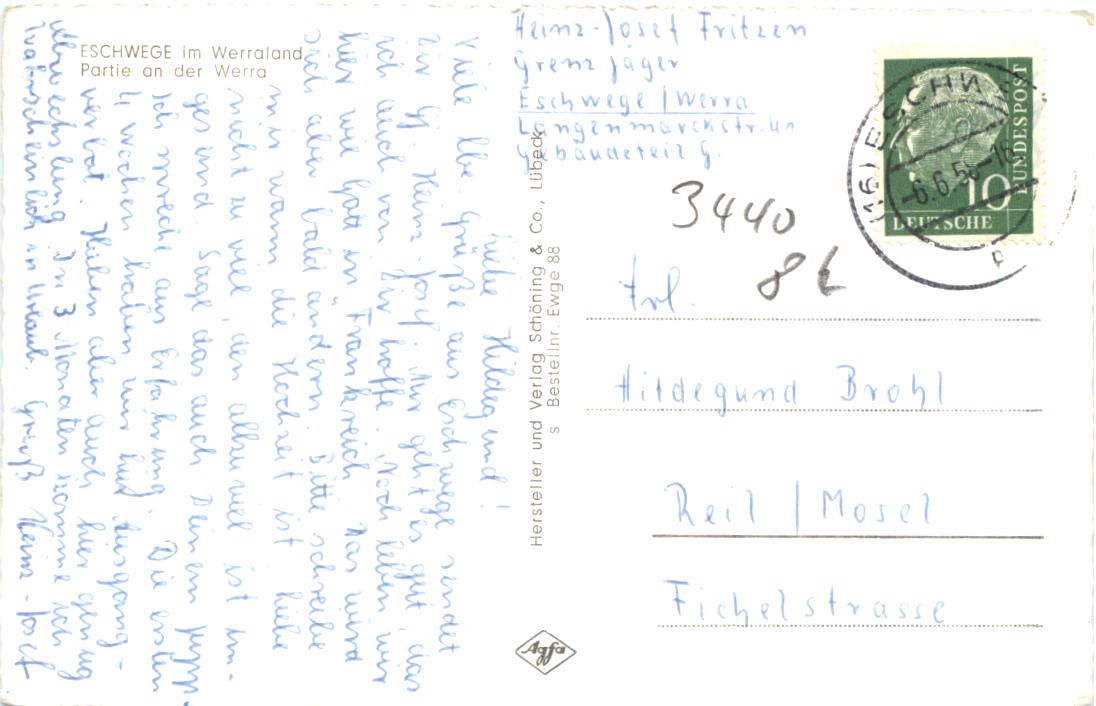 ESCHWEGE im Werraland
Partie an der Werra
Heinz-Josef Fritzen
Grenzjäger
Eschwege / Werra
Langenmarckstr. 41
Gebäudeteil G.
(16) ESCHW
-6.6.56-16
DEUTSCHE
BUNDESPOST
10
3440
86
Frl.
Hildegund Brohl
Reil / Mosel
Fichelstrasse
Hersteller und Verlag Schöning & Co., Lübeck
s Bestellnr. Ewge 88
Agfa
Liebe Hildegund!
Viele lbe. Grüße aus Eschwege sendet
Dir Hj. Heinz-Josef. Mir geht es gut das
ich auch von Dir hoffe. Noch leben wir
hier wie Gott in Frankreich. Das wird
sich aber bald ändern. Bitte schreibe
mir wann die Hochzeit ist. Liebe
nicht zu viel, den allzuviel ist un-
gesund. Sage das auch Deinem Jupp.
Ich spreche aus Erfahrung. Die ersten
4 Wochen haben wir hier Ausgang-
verbot. Haben aber auch hier genug
Abwechslung. In 3 Monaten komme ich
wahrscheinlich in Urlaub. Gruß Heinz-Josef